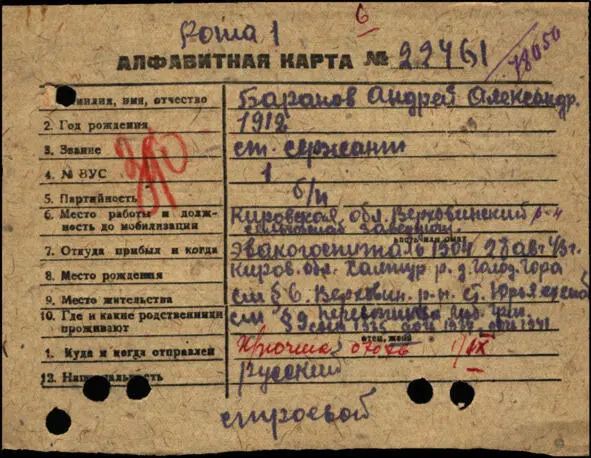 Рота 1
6
АЛФАВИТНАЯ КАРТА № 22461
78050
милия, имя, отчество Баранов Андрей Александр.
2. Год рождения 1912
3. Звание ст. сержант
4. № ВУС 1
5. Партийность б/п
6. Место работы и долж-
ность до мобилизации Кировская обл. Верховинский р-н
7. Откуда прибыл и когда Эвакогоспиталь 1504 28 авг 43 г.
8. Место рождения Киров. обл. Халтур. р. д. Голод. Гора
9. Место жительства см § 6. Верховин. р-н. ст. Юрья
10. Где и какие родственники
проживают см § 9
1. Куда и когда отправлен 07076 1/IX
12. Национальность русский
строевой